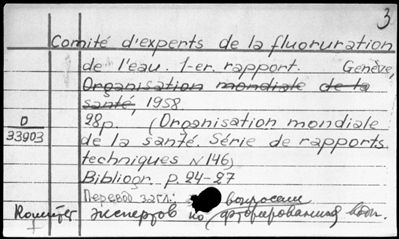 3
Comité d'experts de la fluoruration
de l'eau. 1-er. rapport. Genève,
Organisation mondiale de la
santé, 1958.
28p. (Organisation mondiale
D
33903
de la santé. Série de rapports
techniques N 146)
Bibliogr. p. 24-27
Перевод загл.: вопросам
Комитет экспертов по фторированию воды.